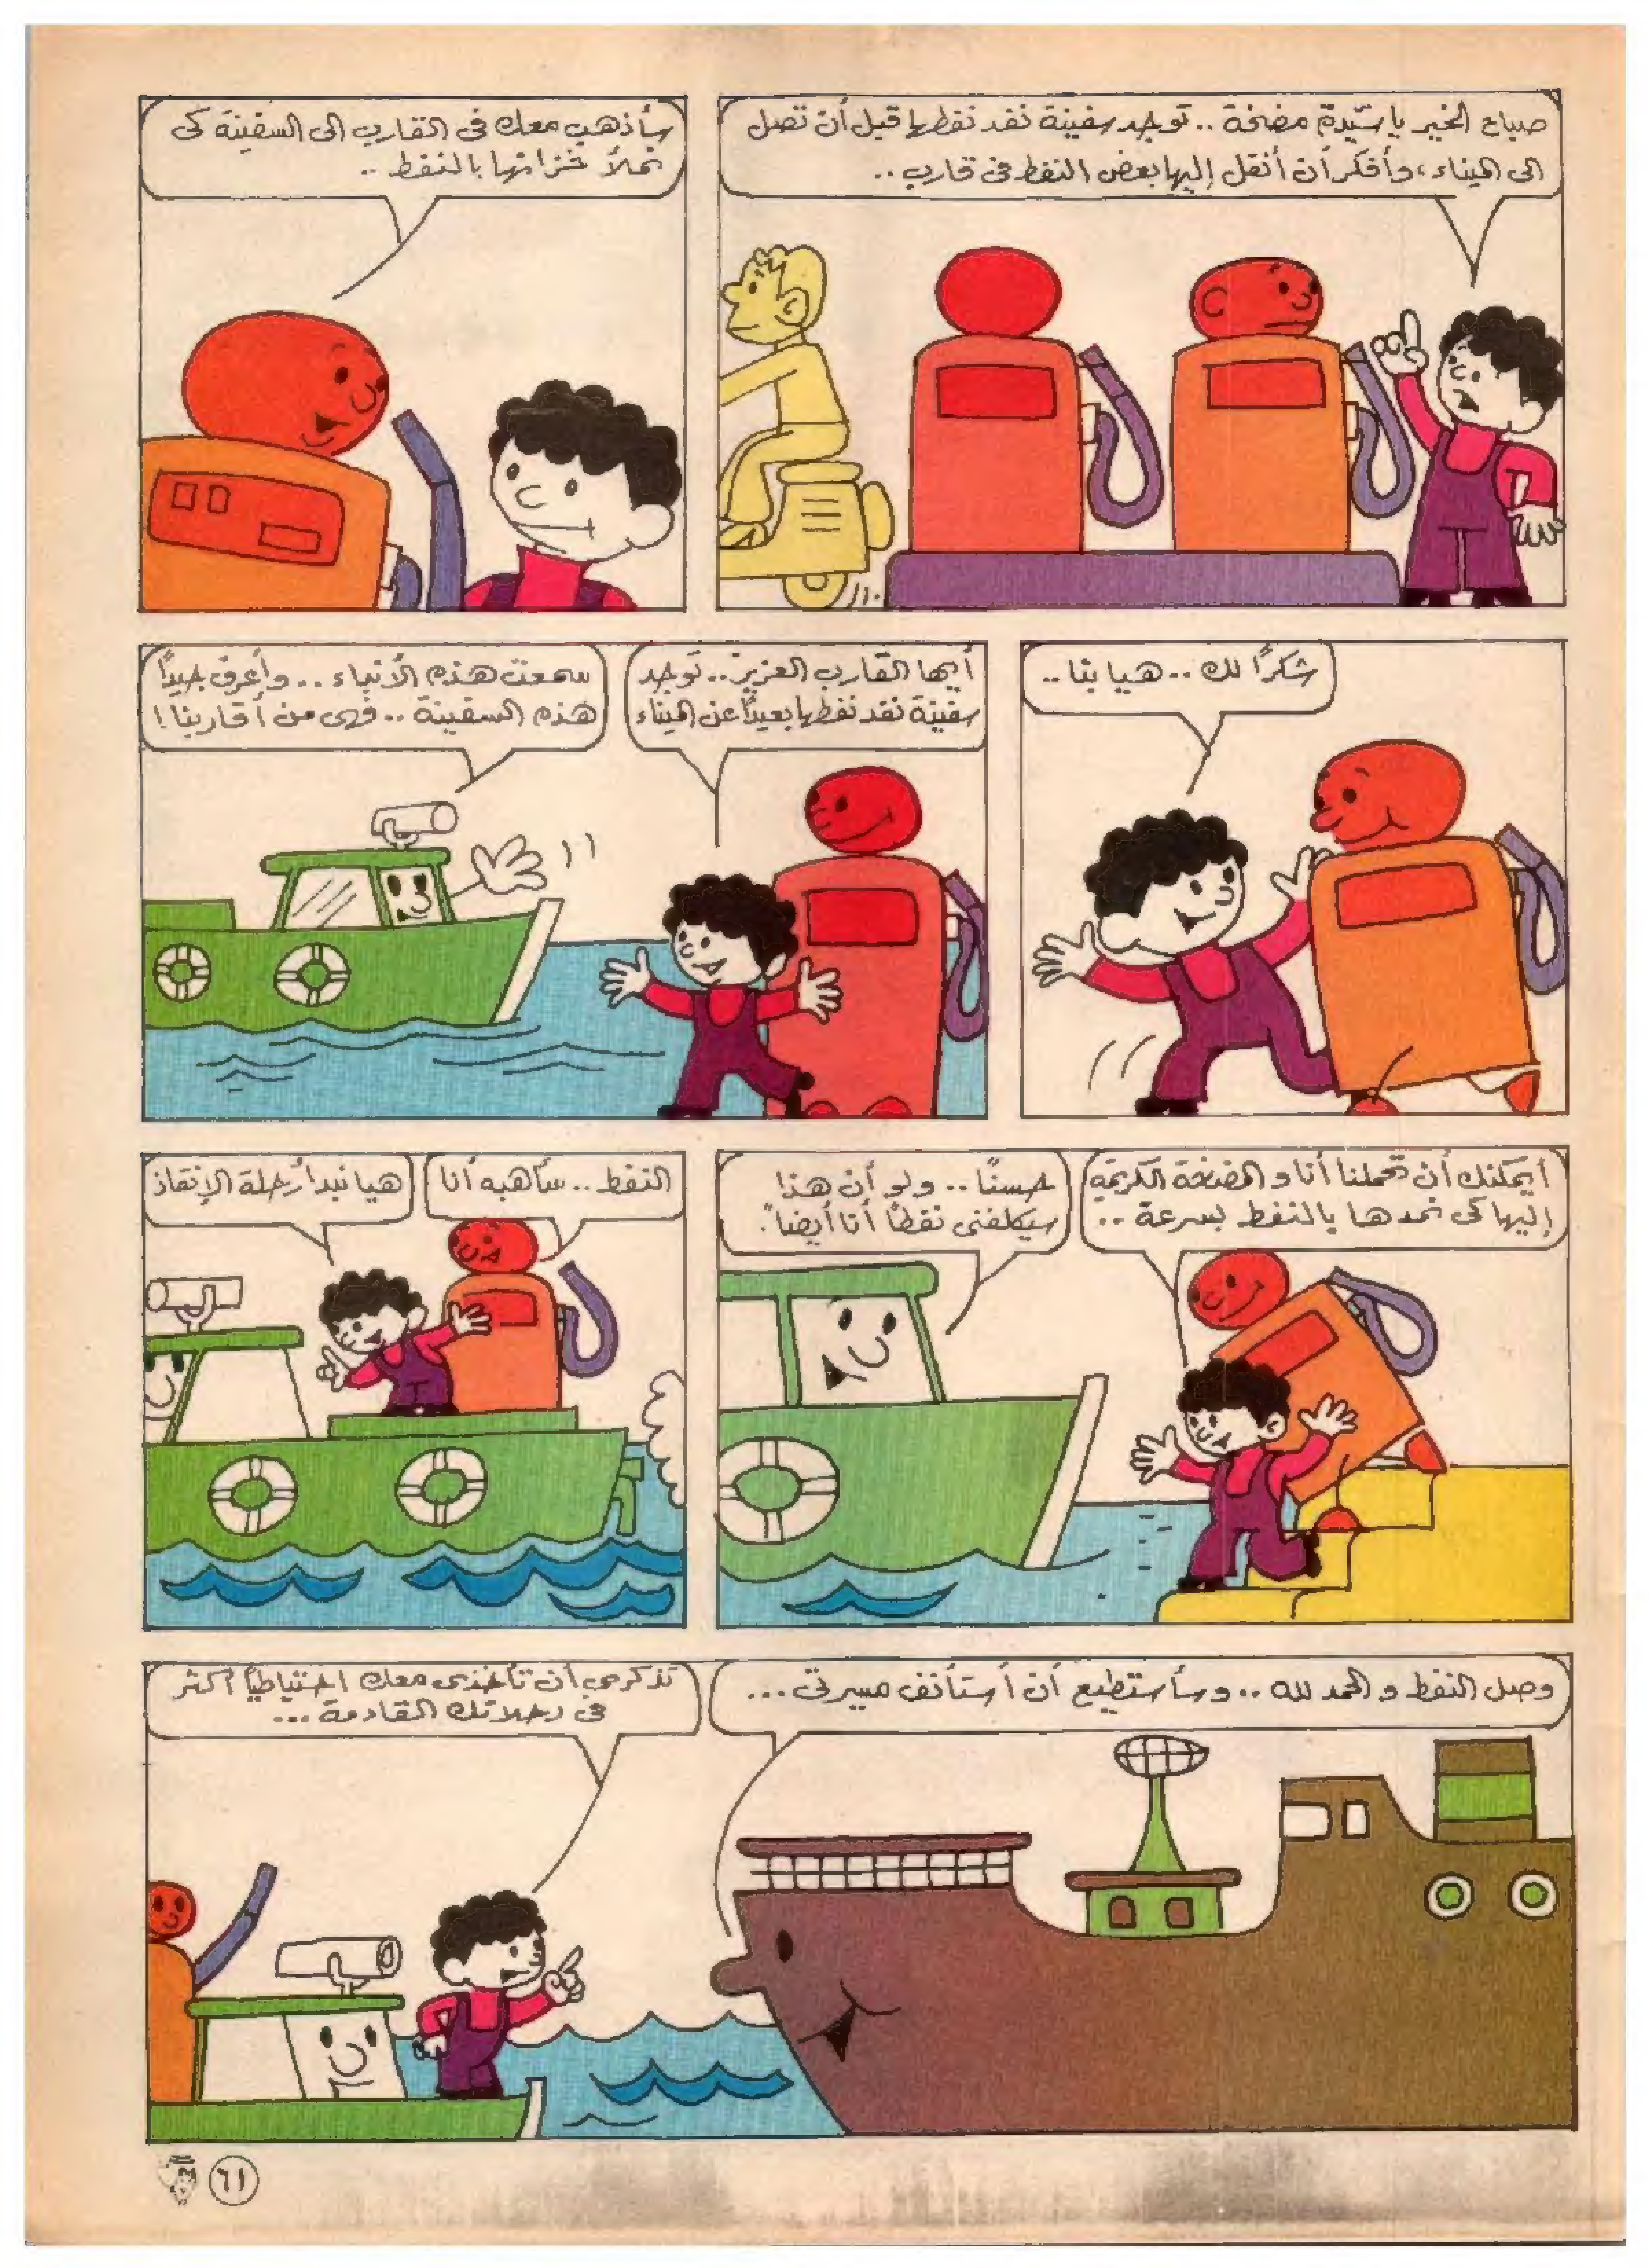 صباح الخير يا سيدة مضخة .. توجد سفينة نفد نفطها قبل أن تصل
الى الميناء، وأفكر أن أنقل إليها بعض النفط فى قارب ..
سأذهب معك فى القارب الى السفينة كى
نملأ خزانها بالنفط ..
شكراً لك .. هيا بنا ..
أيها القارب العزيز .. توجد
سفينة نفد نفطها بعيداً عن الميناء
سمعت هذه الأنباء .. وأعرف جيداً
هذه السفينة .. فهى من أقاربنا !
أيمكنك أن تحملنا أنا و المضخة الكريمة
إليها كى نمدها بالنفط بسرعة ..
حسنًا .. ولو أن هذا
سيكلفنى نفطاً أنا أيضاً.
النفط .. سأهبه أنا
هيا نبدأ رحلة الإنقاذ
وصل النفط و الحمد لله .. وسأستطيع أن أستأنف مسيرتى ...
تذكرى أن تأخذى معك احتياطياً أكثر
فى رحلاتك القادمة ...
٦١